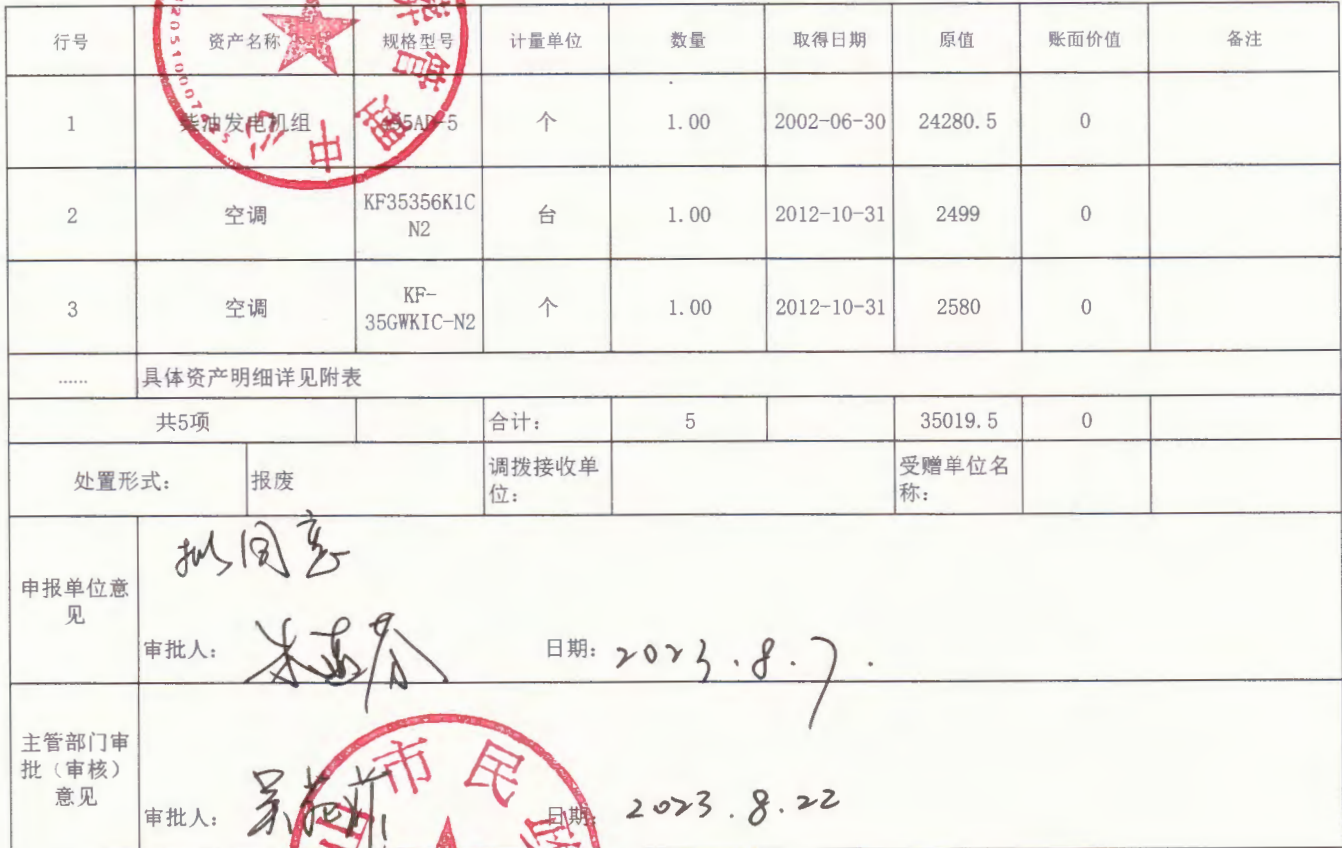 行号 资产名称 规格型号 计量单位 数量 取得日期 原值 账面价值 备注
1 柴油发电机组 495AD-5 个 1.00 2002-06-30 24280.5 0
2 空调 KF35356K1C 台 1.00 2012-10-31 2499 0
N2
3 空调 KF- 个 1.00 2012-10-31 2580 0
35GWKIC-N2
...... 具体资产明细详见附表
共5项 合计: 5 35019.5 0
处置形式: 报废 调拨接收单 受赠单位名
位: 称:
拟同意
申报单位意
见
审批人: 日期: 2023.8.7.
主管部门审
批(审核)
意见
审批人: 日期: 2023.8.22
管理中心
市民政